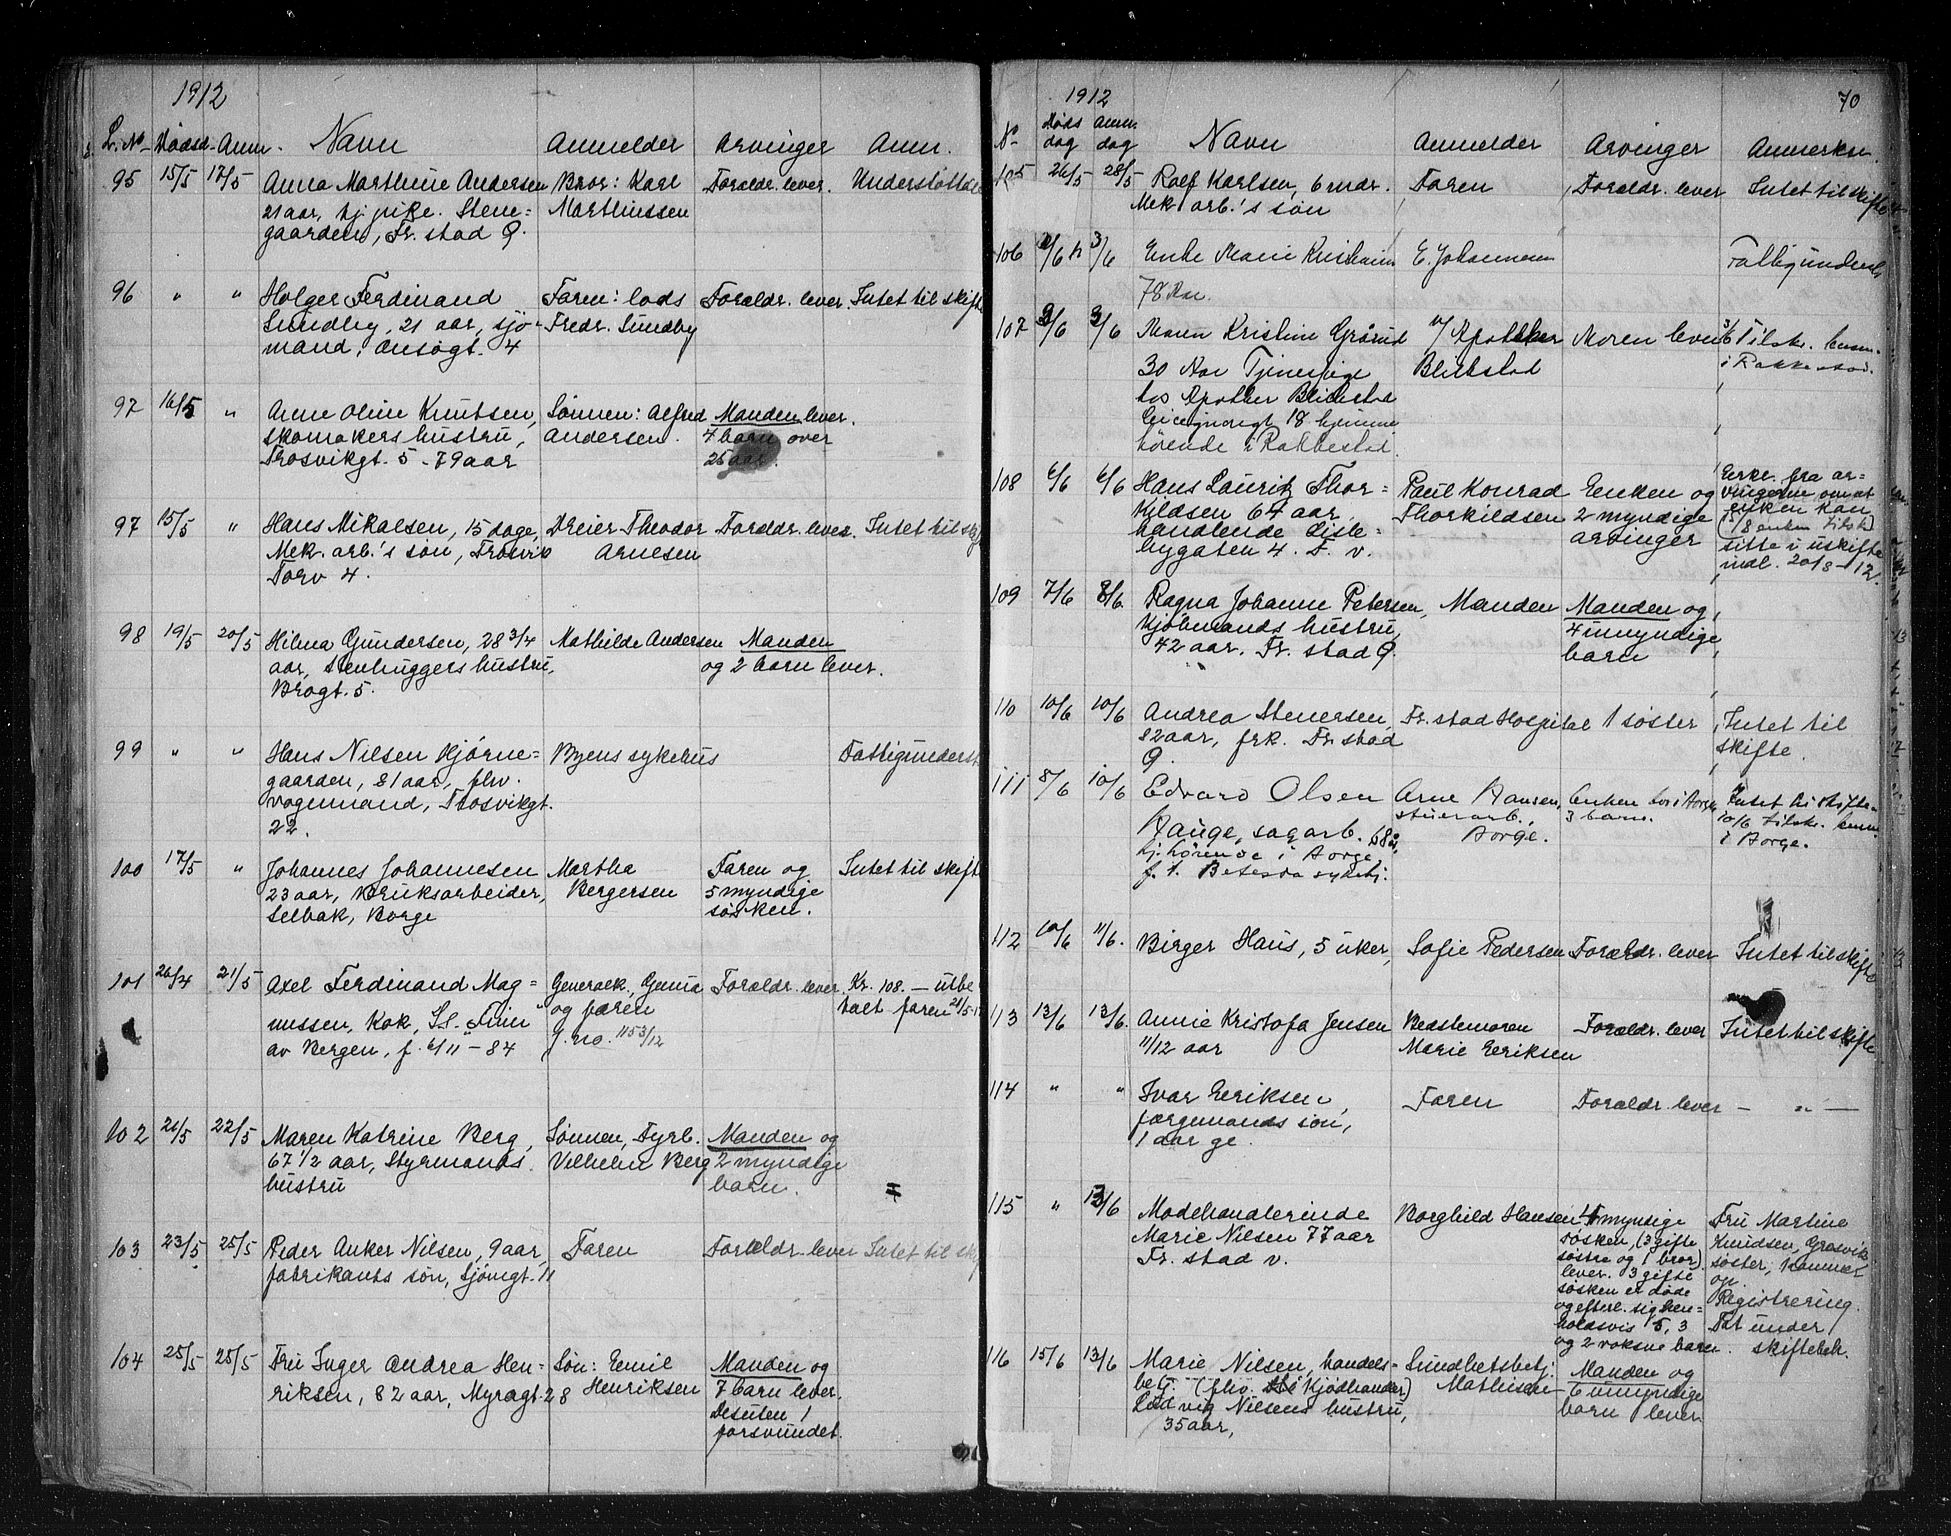 1912
L. No Dødsd. Anm. Navn Anmelder Arvinger Anm.
95 15/5 17/5 Anna Marthine Andersen Bror: Karl Foraldr. lever. Understøttet
21 aar, hj. pike. Stene= Marthinssen
gaarden, Fr. stad Ø.
96 " " Holger Ferdinand Faren: lods Foraldr. lever. Intet til skifte
Sundby, 21 aar, sjø- Fredr. Sundby
mand, Onsøgt. 4
97 16/5 " Anne Oline Knutsen, Sønnen: Alfred Manden lever.
skomakers hustru, Andersen. 4 barn over
Trosvikgt. 5 - 79 aar 25 aar.
97 15/5 " Hans Mikalsen, 15 dage, Dreier Theodor Foraldr. lever. Intet til skifte
Mek. arb.'s søn, Trosvik Arnesen
Torv 4.
98 19/5 20/5 Hilma Gundersen, 28 3/4 Mathilde Andersen Manden
aar, stenhuggers hustru, og 2 barn lever.
Brogt. 5.
99 " " Hans Nilsen Hjørne= Byens sykehus Fattigunderst
gaarden, 81 aar, fhv.
vognmand, Trosvikgt.
22.
100 17/5 " Johannes Johannesen Martha Faren og Intet til skifte
23 aar, Bruksarbeider, Bergersen 5 myndige
Selbak, Borge søsken.
101 26/4 21/5 Axel Ferdinand Mag= Foraldr. lever Kr. 108. — utbe
nussen, Kok, S.S. "Finn" og faren talt faren 21/5-
av Bergen, f. 6/11 - 84 J. no. 1153/12
102 21/5 22/5 Maren Katrine Berg, Sønnen, Fyrb. Manden og
67 1/2 aar, Styrmands Vilhelm Berg 2 myndige
hustru barn.
103 23/5 25/5 Peder Anker Nilsen, 9 aar, Faren Foraldr. lever Intet til sk
fabrikants søn, Sjømgt. 11
104 25/5 25/5 Fru Inger Andrea Hen= Søn: Emil Manden og
riksen, 82 aar, Myragt. 28 Henriksen 7 barn lever.
Desuten 1
forsvundet.
1912 70
No Døds dag Anm. dag Navn Anmelder Arvinger Anmerkn.
105 26/5 28/5 Rolf Karlsen, 6 mdr. Faren Foraldr. lever Intet til skifte
Mek. arb.'s søn
106 2/6 3/6 Enke Marie Kristiansen E. Johannesen Fattigunderst
78 Aar.
107 3/6 3/6 Maren Kristine Grårud v/ Apotheker Moren lever 3/6 Tilskr. lensm.
30 Aar Tjenerpige Blichstad i Rakkestad.
hos Apother Blichstad
18 hjemme
hørende i Rakkestad.
108 6/6 6/6 Hans Lauritz Thor= Paul Konrad Enken og Erkl. fra ar-
kildsen 64 aar. Thorkildsen 2 myndige vingerne om at
handlende Gisle= arvinger enken kan
bygaten 4. F. v. (/8 enken tilskr.)
sitte i uskifte
indl. 20/8-12.
109 7/6 8/6. Ragna Johanne Petersen, Manden Manden og
Kjøbmands hustru, 4 umyndige
42 aar. Fr. stad Ø. barn
110 10/6 10/6 Andrea Stenersen Fr. stad Hospital 1 søster Intet til
82 aar, frk. Fr. stad skifte.
Ø.
111 8/6 10/6 Edvard Olsen Arne Hansen, Enken bor i Borge, Intet til skifte.
Hauge, sagarb. 68 år, stuerarb., 3 barn. 10/6 tilskr. lensm.
hj. hørende i Borge, Borge. i Borge.
f. t. Betesda sykehj.
112 10/6 11/6. Birger Haus, 5 uker, Sofie Pedersen Foraldr. lever Intet til skifte
113 13/6 13/6. Annie Kristofa Jensen Bedstemoren Foraldr. lever Intet til skifte
11/12 aar Marie Eriksen
114 " " Ivar Eriksen, Faren Foraldr. lever — " —
færgemands søn,
1 aar gl.
115 " 13/6 Modehandlerinde Borghild Hansen 4 myndige Fru Martine
Marie Nilsen 77 aar søsken, (3 gifte Knudsen, Grosvik
Fr. stad v. søstre og 1 bror) søster, kommer
lever. 3 gifte op.
søsken er døde Registrering.
og efterl. sig hen= Tat under
holdsvis 5, 3 skiftebeh.
og 2 voksne barn.
116 15/6 13/6 Marie Nilsen, handels= Sundhetsbetj. Manden og
betj. (fhv. Kjødhandler) Mathisen 6 umyndige
Ludvig Nilsens hustru, barn lever
35 aar,